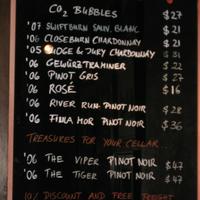 CO₂ BUBBLES $27
'07 SWIFTBURN SAUV. BLANC $21
'06 CLOSEBURN CHARDONNAY $21
'05 JUDGE & JURY CHARDONNAY $31
'06 GEWÜRZTRAMINER $22
'06 PINOT GRIS $27
'06 ROSÉ $16
'06 RIVER RUN PINOT NOIR $28
'06 FINLA MOR PINOT NOIR $36
TREASURES FOR YOUR CELLAR...
'06 THE VIPER PINOT NOIR $47
'06 THE TIGER PINOT NOIR $47
10% DISCOUNT AND FREE FREIGHT